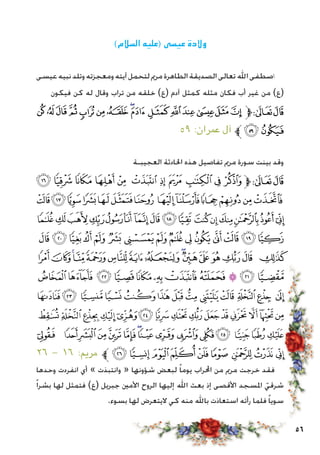 ولادة عيسى (عليه السلام)
اصطفى الله تعالى الصديقة الطاهرة مريم لتحمل آيته ومعجزته وتلد نبيه عيسى
(ع) من غير أب فكان مثله كمثل آدم (ع) خلقه من تراب وقال له كن فيكون
قال تعالى: ﴿ إِنَّ مَثَلَ عِيسَىٰ عِندَ اللَّهِ كَمَثَلِ آدَمَ ۖ خَلَقَهُ مِن تُرَابٍ ثُمَّ قَالَ لَهُ كُن
فَيَكُونُ ﴿٥٩﴾ ﴾ آل عمران: ٥٩
وقد بينت سورة مريم تفاصيل هذه الحادثة العجيبة
قال تعالى: ﴿ وَاذْكُرْ فِي الْكِتَابِ مَرْيَمَ إِذِ انتَبَذَتْ مِنْ أَهْلِهَا مَكَانًا شَرْقِيًّا ﴿١٦﴾
فَاتَّخَذَتْ مِن دُونِهِمْ حِجَابًا فَأَرْسَلْنَا إِلَيْهَا رُوحَنَا فَتَمَثَّلَ لَهَا بَشَرًا سَوِيًّا ﴿١٧﴾ قَالَتْ
إِنِّي أَعُوذُ بِالرَّحْمَٰنِ مِنكَ إِن كُنتَ تَقِيًّا ﴿١٨﴾ قَالَ إِنَّمَا أَنَا رَسُولُ رَبِّكِ لِأَهَبَ لَكِ غُلَامًا
زَكِيًّا ﴿١٩﴾ قَالَتْ أَنَّىٰ يَكُونُ لِي غُلَامٌ وَلَمْ يَمْسَسْنِي بَشَرٌ وَلَمْ أَكُ بَغِيًّا ﴿٢٠﴾ قَالَ
كَذَٰلِكِ قَالَ رَبُّكِ هُوَ عَلَيَّ هَيِّنٌ ۖ وَلِنَجْعَلَهُ آيَةً لِّلنَّاسِ وَرَحْمَةً مِّنَّا ۚ وَكَانَ أَمْرًا
مَّقْضِيًّا ﴿٢١﴾ ۞ فَحَمَلَتْهُ فَانتَبَذَتْ بِهِ مَكَانًا قَصِيًّا ﴿٢٢﴾ فَأَجَاءَهَا الْمَخَاضُ
إِلَىٰ جِذْعِ النَّخْلَةِ قَالَتْ يَا لَيْتَنِي مِتُّ قَبْلَ هَٰذَا وَكُنتُ نَسْيًا مَّنسِيًّا ﴿٢٣﴾ فَنَادَاهَا
مِن تَحْتِهَا أَلَّا تَحْزَنِي قَدْ جَعَلَ رَبُّكِ تَحْتَكِ سَرِيًّا ﴿٢٤﴾ وَهُزِّي إِلَيْكِ بِجِذْعِ النَّخْلَةِ تُسَاقِطْ
عَلَيْكِ رُطَبًا جَنِيًّا ﴿٢٥﴾ فَكُلِي وَاشْرَبِي وَقَرِّي عَيْنًا ۖ فَإِمَّا تَرَيِنَّ مِنَ الْبَشَرِ أَحَدًا فَقُولِي
إِنِّي نَذَرْتُ لِلرَّحْمَٰنِ صَوْمًا فَلَنْ أُكَلِّمَ الْيَوْمَ إِنسِيًّا ﴿٢٦﴾ ﴾ مريم: ١٦ – ٢٦
فقد خرجت مريم من المحراب يوماً لبعض شؤونها « وانتبذت » أي انفردت وحدها
شرقيّ المسجد الأقصى إذ بعث الله إليها الروح الأمين جبريل (ع) فتمثل لها بشراً
سوياً فلما رأته استعاذت بالله منه كي لايتعرض لها بسوء.
٥٦